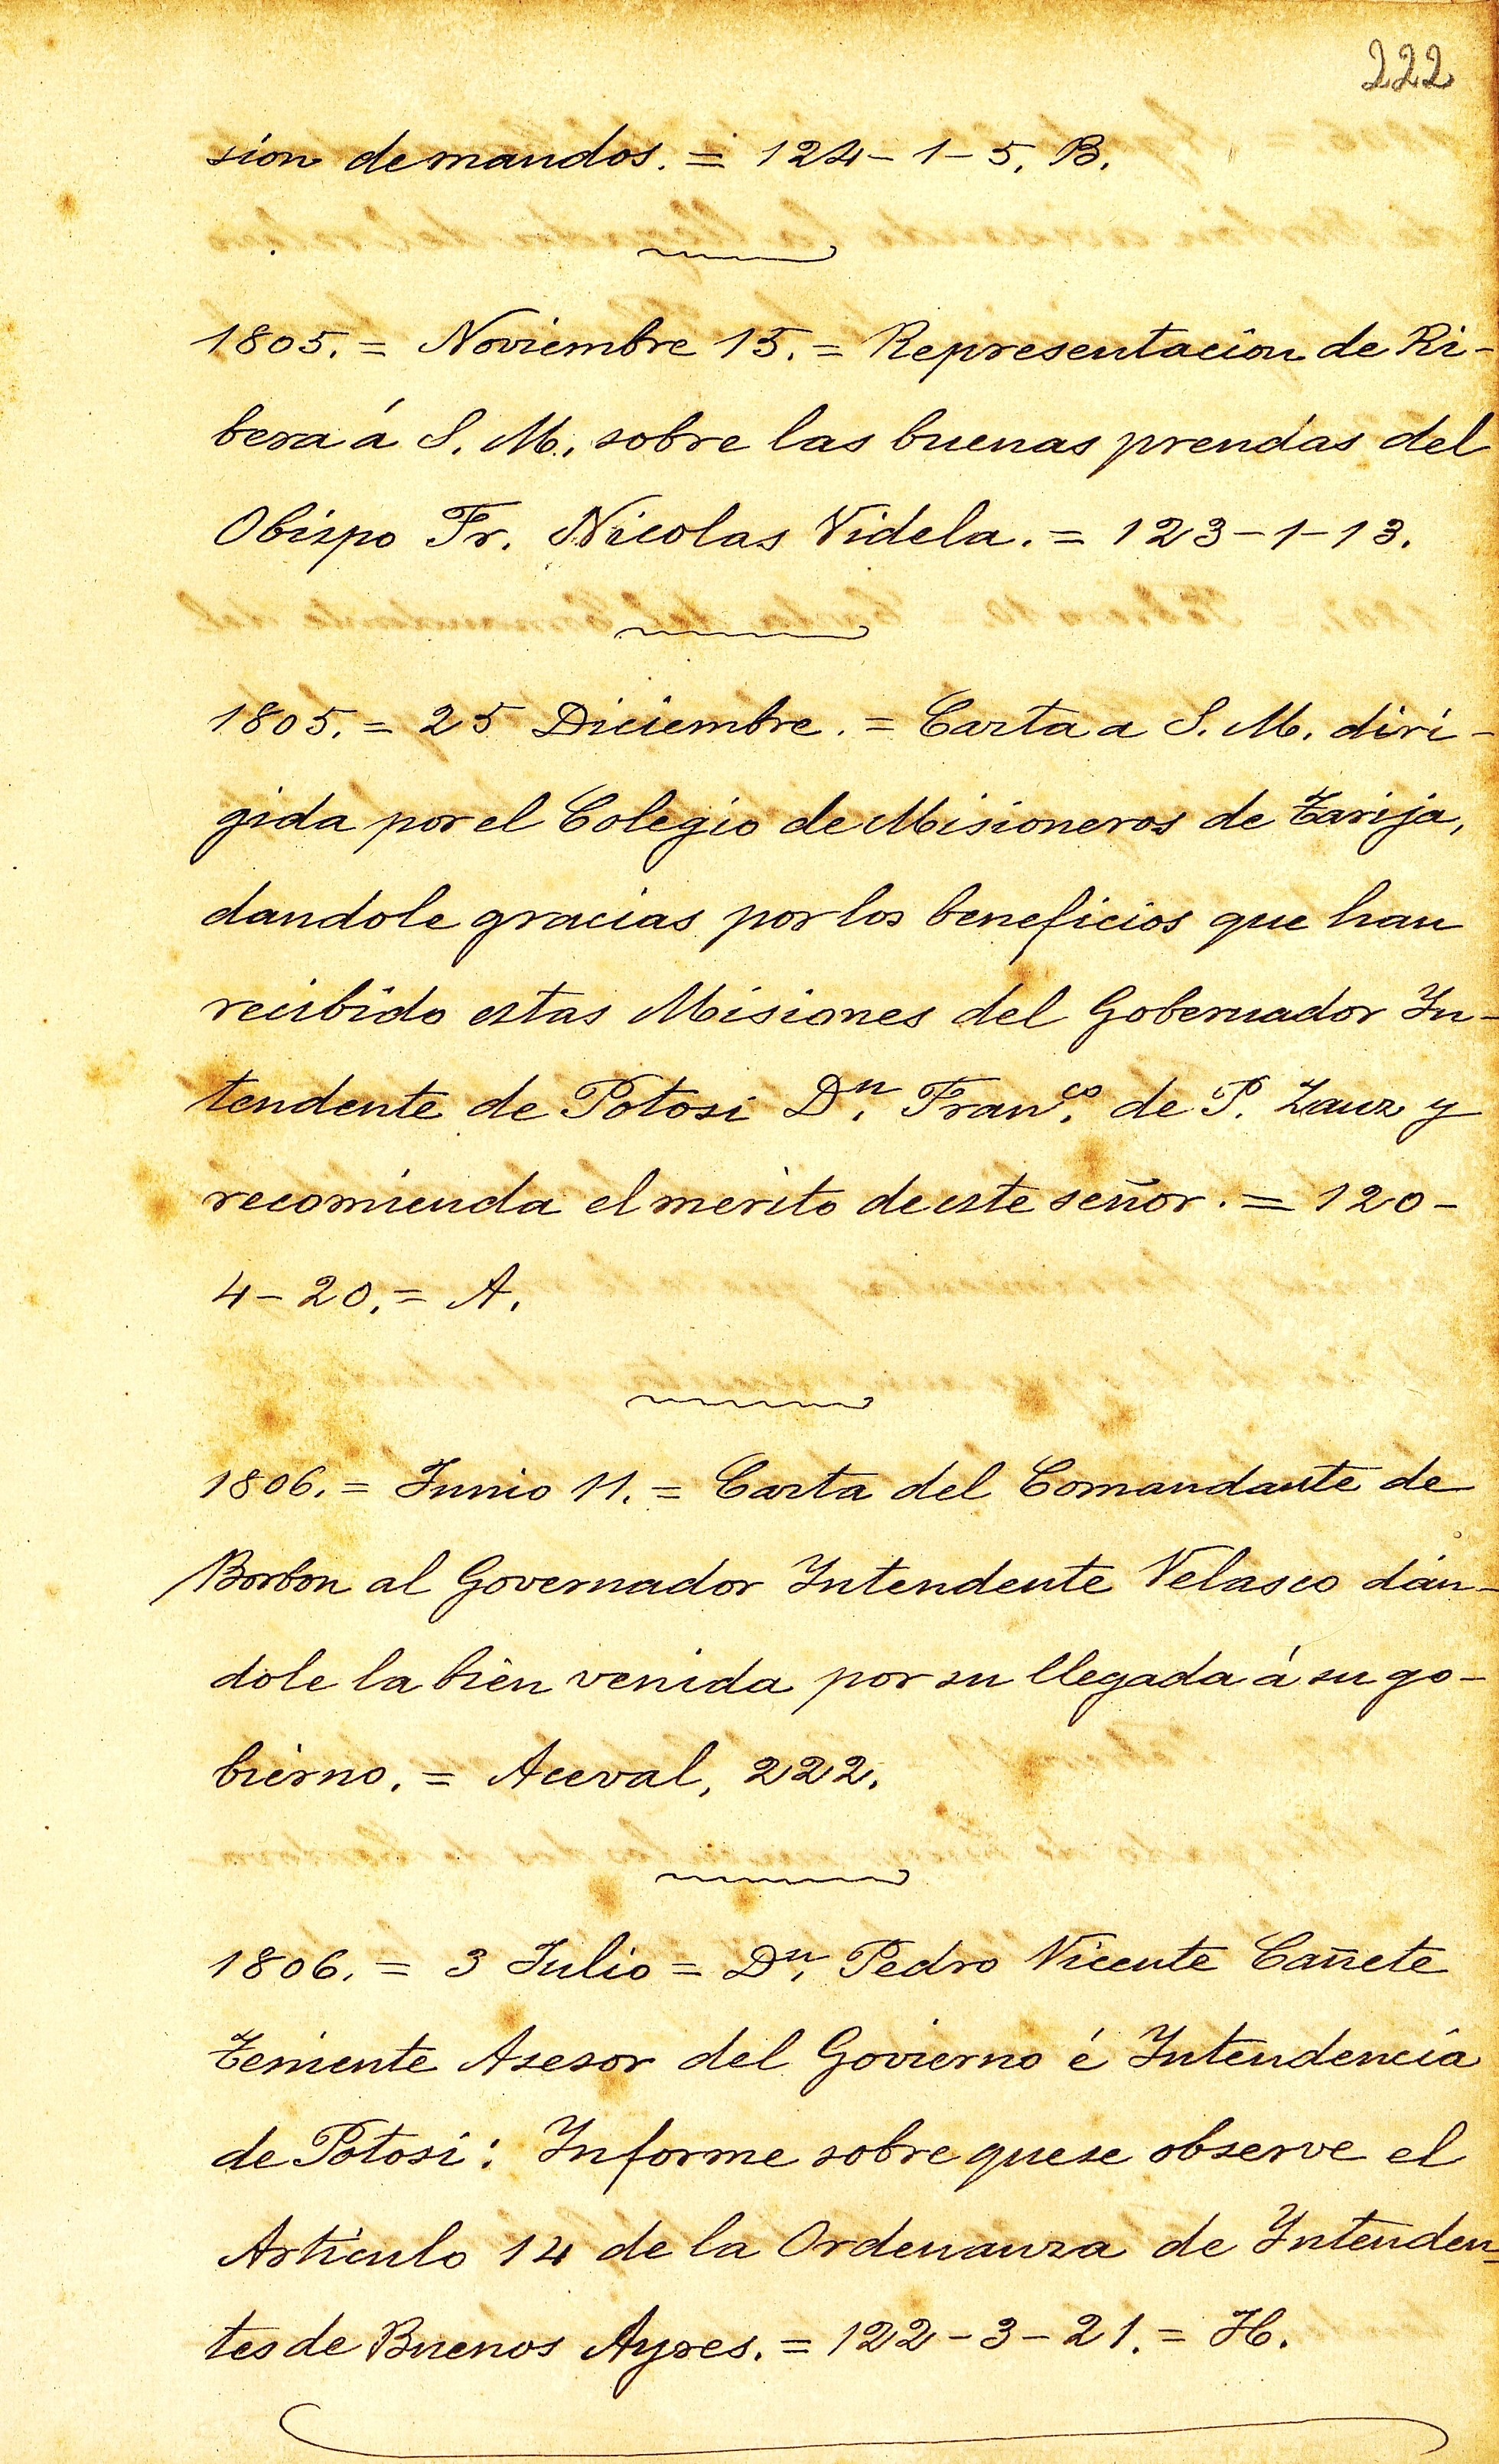 222
sion de mandos. = 124-1-5. B.
1805. = Noviembre 15. = Representacion de Ri-
bera á S. M. sobre las buenas prendas del
Obispo Fr. Nicolas Videla. = 123-1-13.
1805. = 25 Diciembre. = Carta a S. M. diri-
gida por el Colegio de Misioneros de Tarija,
dandole gracias por los beneficios que han
recibido estas Misiones del Gobernador In-
tendente de Potosi Dn. Franco. de P. Zauz y
recomienda el merito de este señor. = 120-
4-20. = A.
1806. = Junio 11. = Carta del Comandante de
Borbon al Governador Intendente Velasco dán-
dole la bien venida por su llegada á su go-
bierno. = Aceval, 222.
1806. = 3 Julio = Dn. Pedro Vicente Cañete
Teniente Asesor del Govierno é Intendencia
de Potosi: Informe sobre que se observe el
Artículo 14 de la Ordenanza de Intenden-
tes de Buenos Ayres. = 122-3-21. = H.